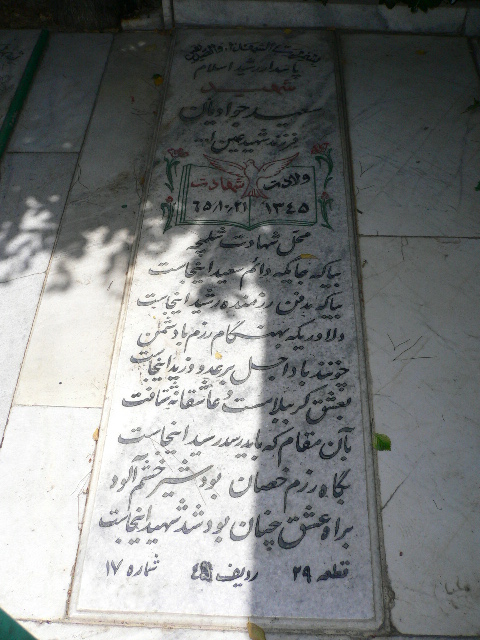 پاسدار رشید اسلام
شهید
سعید جوادیان
فرزند شهید عین ا...
ولادت شهادت
۱۳۴۵ ۶۵/۱۰/۲۱
محل شهادت شلمچه
بیا که جایگه دائم سعید اینجاست
بیا که مدفن رزمنده رشید اینجاست
دلاوریکه بهنگام رزم با دشمن
چو تند باد اجل بر عدو وزید اینجاست
بعشق کربلا مست و عاشقانه شتافت
بآن مقام که باید رسد رسید اینجاست
بگاه رزم خصمان بود شیر خشم آلود
براه عشق چنان بود شد شهید اینجاست
قطعه ۲۹ ردیف ۴۵ شماره ۱۷